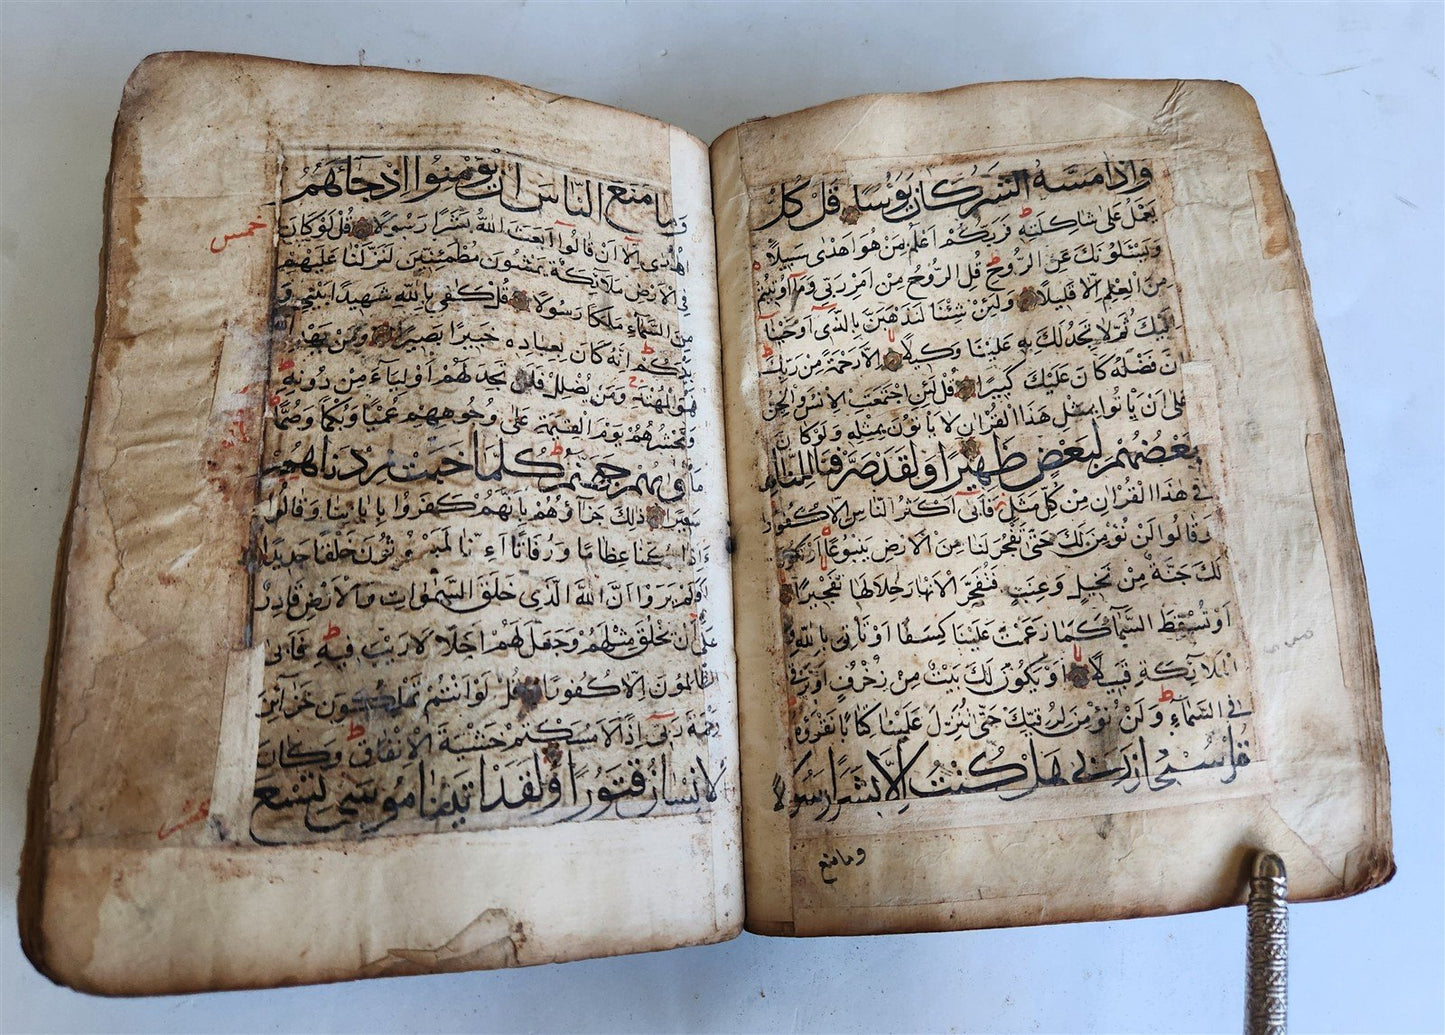 واذا مسه الشر كان يؤسا قل كل
يعمل على شاكلته فربكم اعلم من هو اهدى سبيلا
ويسئلونك عن الروح قل الروح من امر ربي وما اوتيتم
من العلم الا قليلا ولئن شئنا لنذهبن بالذي اوحينا
اليك ثم لا تجد لك به علينا وكيلا الا رحمة من ربك
ان فضله كان عليك كبيرا قل لئن اجتمعت الانس والجن
على ان ياتوا بمثل هذا القران لا ياتون بمثله ولو كان
بعضهم لبعض ظهيرا ولقد صرفنا للناس
في هذا القران من كل مثل فابى اكثر الناس الا كفورا
وقالوا لن نؤمن لك حتى تفجر لنا من الارض ينبوعا او تكون
لك جنة من نخيل وعنب فتفجر الانهار خلالها تفجيرا
او تسقط السماء كما زعمت علينا كسفا او تاتي بالله
والملائكة قبيلا او يكون لك بيت من زخرف او ترقى
في السماء ولن نؤمن لرقيك حتى تنزل علينا كتابا نقرؤه
قل سبحان ربي هل كنت الا بشرا رسولا
وما منع
وما منع الناس ان يؤمنوا اذ جاءهم
الهدى الا ان قالوا ابعث الله بشرا رسولا قل لو كان
خمس
في الارض ملائكة يمشون مطمئنين لنزلنا عليهم
من السماء ملكا رسولا قل كفى بالله شهيدا بيني و
بينكم انه كان بعباده خبيرا بصيرا ومن يهد الله
فهو المهتد ومن يضلل فلن تجد لهم اولياء من دونه
ونحشرهم يوم القيمة على وجوههم عميا وبكما وصما
ماويهم جهنم كلما خبت زدناهم
سعيرا ذلك جزاؤهم بانهم كفروا باياتنا وقالوا
ءاذا كنا عظاما ورفاتا ءانا لمبعوثون خلقا جديدا
اولم يروا ان الله الذي خلق السموات والارض قادر
على ان يخلق مثلهم وجعل لهم اجلا لا ريب فيه فابى
الظالمون الا كفورا قل لو انتم تملكون خزائن
رحمة ربي اذا لامسكتم خشية الانفاق وكان
الانسان قتورا ولقد اتينا موسى تسع
عشر